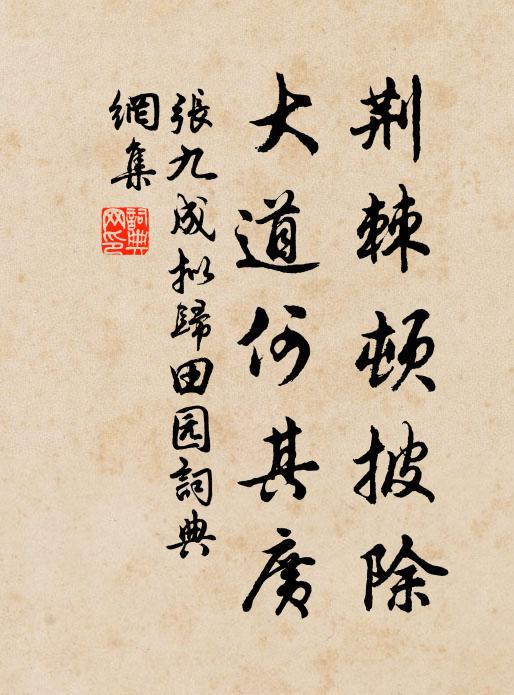 荆棘頓披除
大道何其廣
張九成拟歸田园詞典
網集
詞典網印